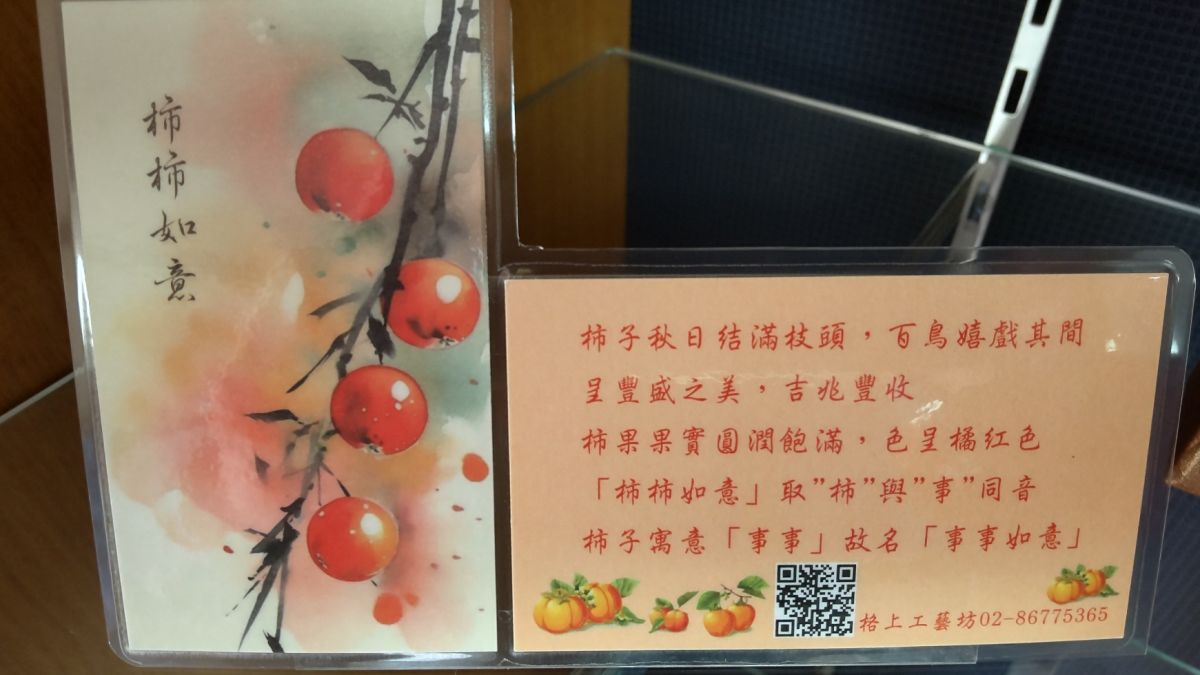 柿柿如意
柿子秋日結滿枝頭，百鳥嬉戲其間
呈豐盛之美，吉兆豐收
柿果果實圓潤飽滿，色呈橘紅色
「柿柿如意」取”柿”與”事”同音
柿子寓意「事事」故名「事事如意」
格上工藝坊02-86775365